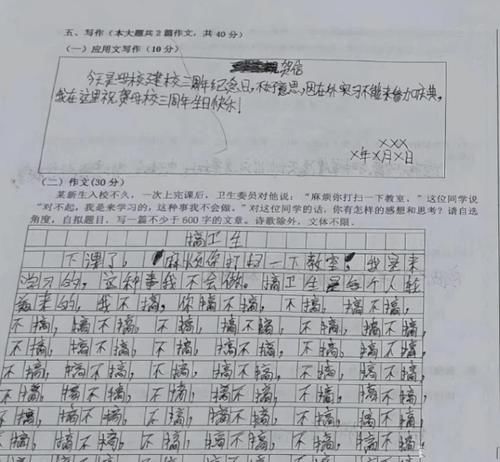 五、写作（本大题共2篇作文，共40分）
（一）应用文写作（10分）
贺信
今天是母校建校三周年纪念日，不好意思，因在外实习不能来参加庆典，
我在这里祝贺母校三周年生日快乐！
×××
×年×月×日
（二）作文(30分)
某新生入校不久，一次上完课后，卫生委员对他说：“麻烦你打扫一下教室。”这位同学说
“对不起，我是来学习的，这种事我不会做。”对这位同学的话，你有怎样的感想和思考？请自选
角度，自拟题目，写一篇不少于600字的文章。诗歌除外，文体不限。
搞卫生
下课了！“麻烦你打扫一下教室。我是来
学习的，这种事我不会做。搞卫生是每个人轮
着来的，我不搞，你搞不搞，不搞，搞不搞，
不搞，搞不搞，不搞，搞不搞，不搞，搞不搞，
不搞，搞不搞，不搞，搞不搞，不搞，搞不搞，
不搞，搞不搞，不搞，搞不搞，不搞，搞不搞，
不搞，搞不搞，不搞，搞不搞，不搞，搞不搞，
不搞，搞不搞，不搞，搞不搞，不搞，搞不搞，
不搞，搞不搞，不搞，搞不搞，不搞，搞不搞，